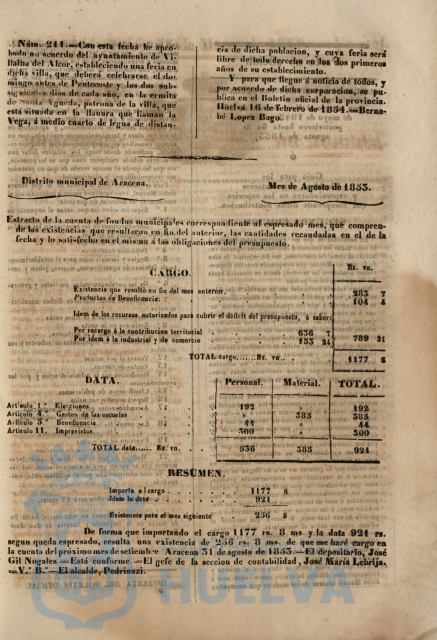 Núm. 241.—Con esta fecha he apro-
bado un acuerdo del ayuntamiento de Vi-
llalba del Alcor, estableciendo una feria en
dicha villa, que deberá celebrarse el do-
mingo antes de Pentecoste y los dos sub-
siguientes dias de cada año, en la ermita
de Santa Agueda, patrona de la villa, que
está situada en la llanura que llaman la
Vega, á medio cuarto de legua de distan-
cia de dicha poblacion, y cuya feria será
libre de todo derecho en los dos primeros
años de su establecimiento.
Y para que llegue á noticia de todos, y
por acuerdo de dicha corporacion, se pu-
blica en el Boletin oficial de la provincia.
Huelva 16 de febrero de 1854.—Berna-
bé Lopez Bago.
Distrito municipal de Aracena.
Mes de Agosto de 1853.
Estracto de la cuenta de fondos municipales correspondiente al espresado mes, que compren-
de las existencias que resultaron en fin del anterior, las cantidades recaudadas en el de la
fecha y lo satisfecho en el mismo á las obligaciones del presupuesto.
CARGO.
Rs. vn.
Existencia que resultó en fin del mes anterior. 283 7
Productos de Beneficencia. 104 4
Idem de los recursos autorizados para cubrir el déficit del presupuesto, á saber:
Por recargo á la contribucion territorial 636 7
Por idem á la industrial y de comercio 153 24 789 31
TOTAL cargo......Rs. vn. 1177 8
DATA.
Personal. Material. TOTAL.
Artículo 1.º Elecciones 192 192
Artículo 4.º Gastos de las escuelas 385 385
Artículo 5.º Beneficencia 44 44
Artículo 11. Imprevistos 300 300
TOTAL data...... Rs. vn. 536 385 921
RESUMEN.
Importa el cargo 1177 8
Idem la data 921
Existencia para el mes siguiente 256 8
De forma que importando el cargo 1177 rs. 8 ms. y la data 921 rs.
segun queda espresado, resulta una existencia de 256 rs. 8 ms. de que me haré cargo en
la cuenta del próximo mes de setiembre Aracena 31 de agosto de 1853.—El depositario, José
Gil Nogales.—Está conforme.—El gefe de la seccion de contabilidad, José María Lebrija.
—V.º B.º—El alcalde, Pedrinazi.
HUELVA